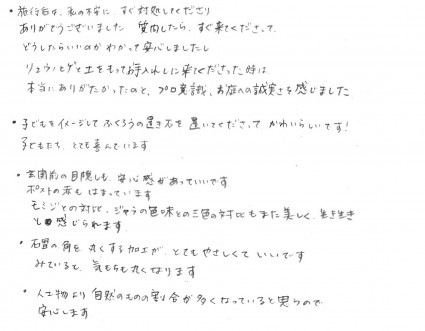 • 施行後は、私の不安に、すぐ対処してくださり
ありがとうございました 質問したら、すぐ来てくださって、
どうしたらいいのかわかって安心しましたし
リュウノヒゲと土をもってお手入れしに来てくださった時は
本当にありがたかったのと、プロ意識、お庭への誠実さを感じました
• 子どもをイメージしてふくろうの置き石を置いてくださって かわいらしいです!
子どもたち、とても喜んでいます
• 玄関前の目隠しも、安心感があっていいです
ポストの赤も はまっています
モミジとの対比、ジャラの色味との三色の対比もまた美しく、生き生き
と感じられます。
• 石畳の角を丸くする加工が、とてもやさしくていいです
みていると、気もちも丸くなります
• 人工物より自然のものの割合が多くなっていると思うので
安心します